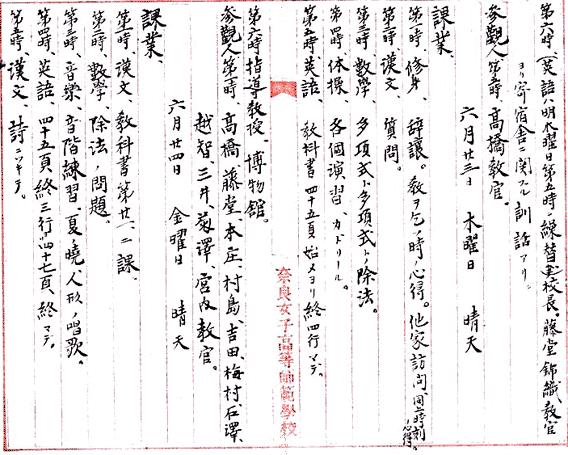 第六時、(英語ハ明木曜日第五時ノ繰替ヘ)校長。藤堂、錦織、教官
ヨリ寄宿舎ニ関スル訓話アリ。
参観人第五時、高橋教官。
六月廿三日 木曜日 晴天
課業、
第一時、修身 辞譲。教ヲ乞フ時ノ心得。他家訪問(同上時刻心得)。
第二時、漢文、質問。
第三時、數學、多項式ト多項式トノ除法。
第四時、体操、各個演習、カドリール。
第五時、英語、教科書四十五頁始メヨリ終四行マデ。
第六時、指導教授、博物館。
参觀人第二時、高橋、藤堂、本庄、村島、吉田、梅村、石澤、
越智、三井、菊澤、宮内教官。
六月廿四日 金曜日 晴天
課業、
第一時、漢文、教科書第廿一、二課、
第二時、數學、除法ノ問題。
第三時、音樂、音階練習、夏ノ曉、人形ノ唱歌。
第四時、英語、四十五頁終三行ヨリ四十七頁、終マデ。
第五時、漢文、詩ニツキテ。
奈良女子高等師範學校